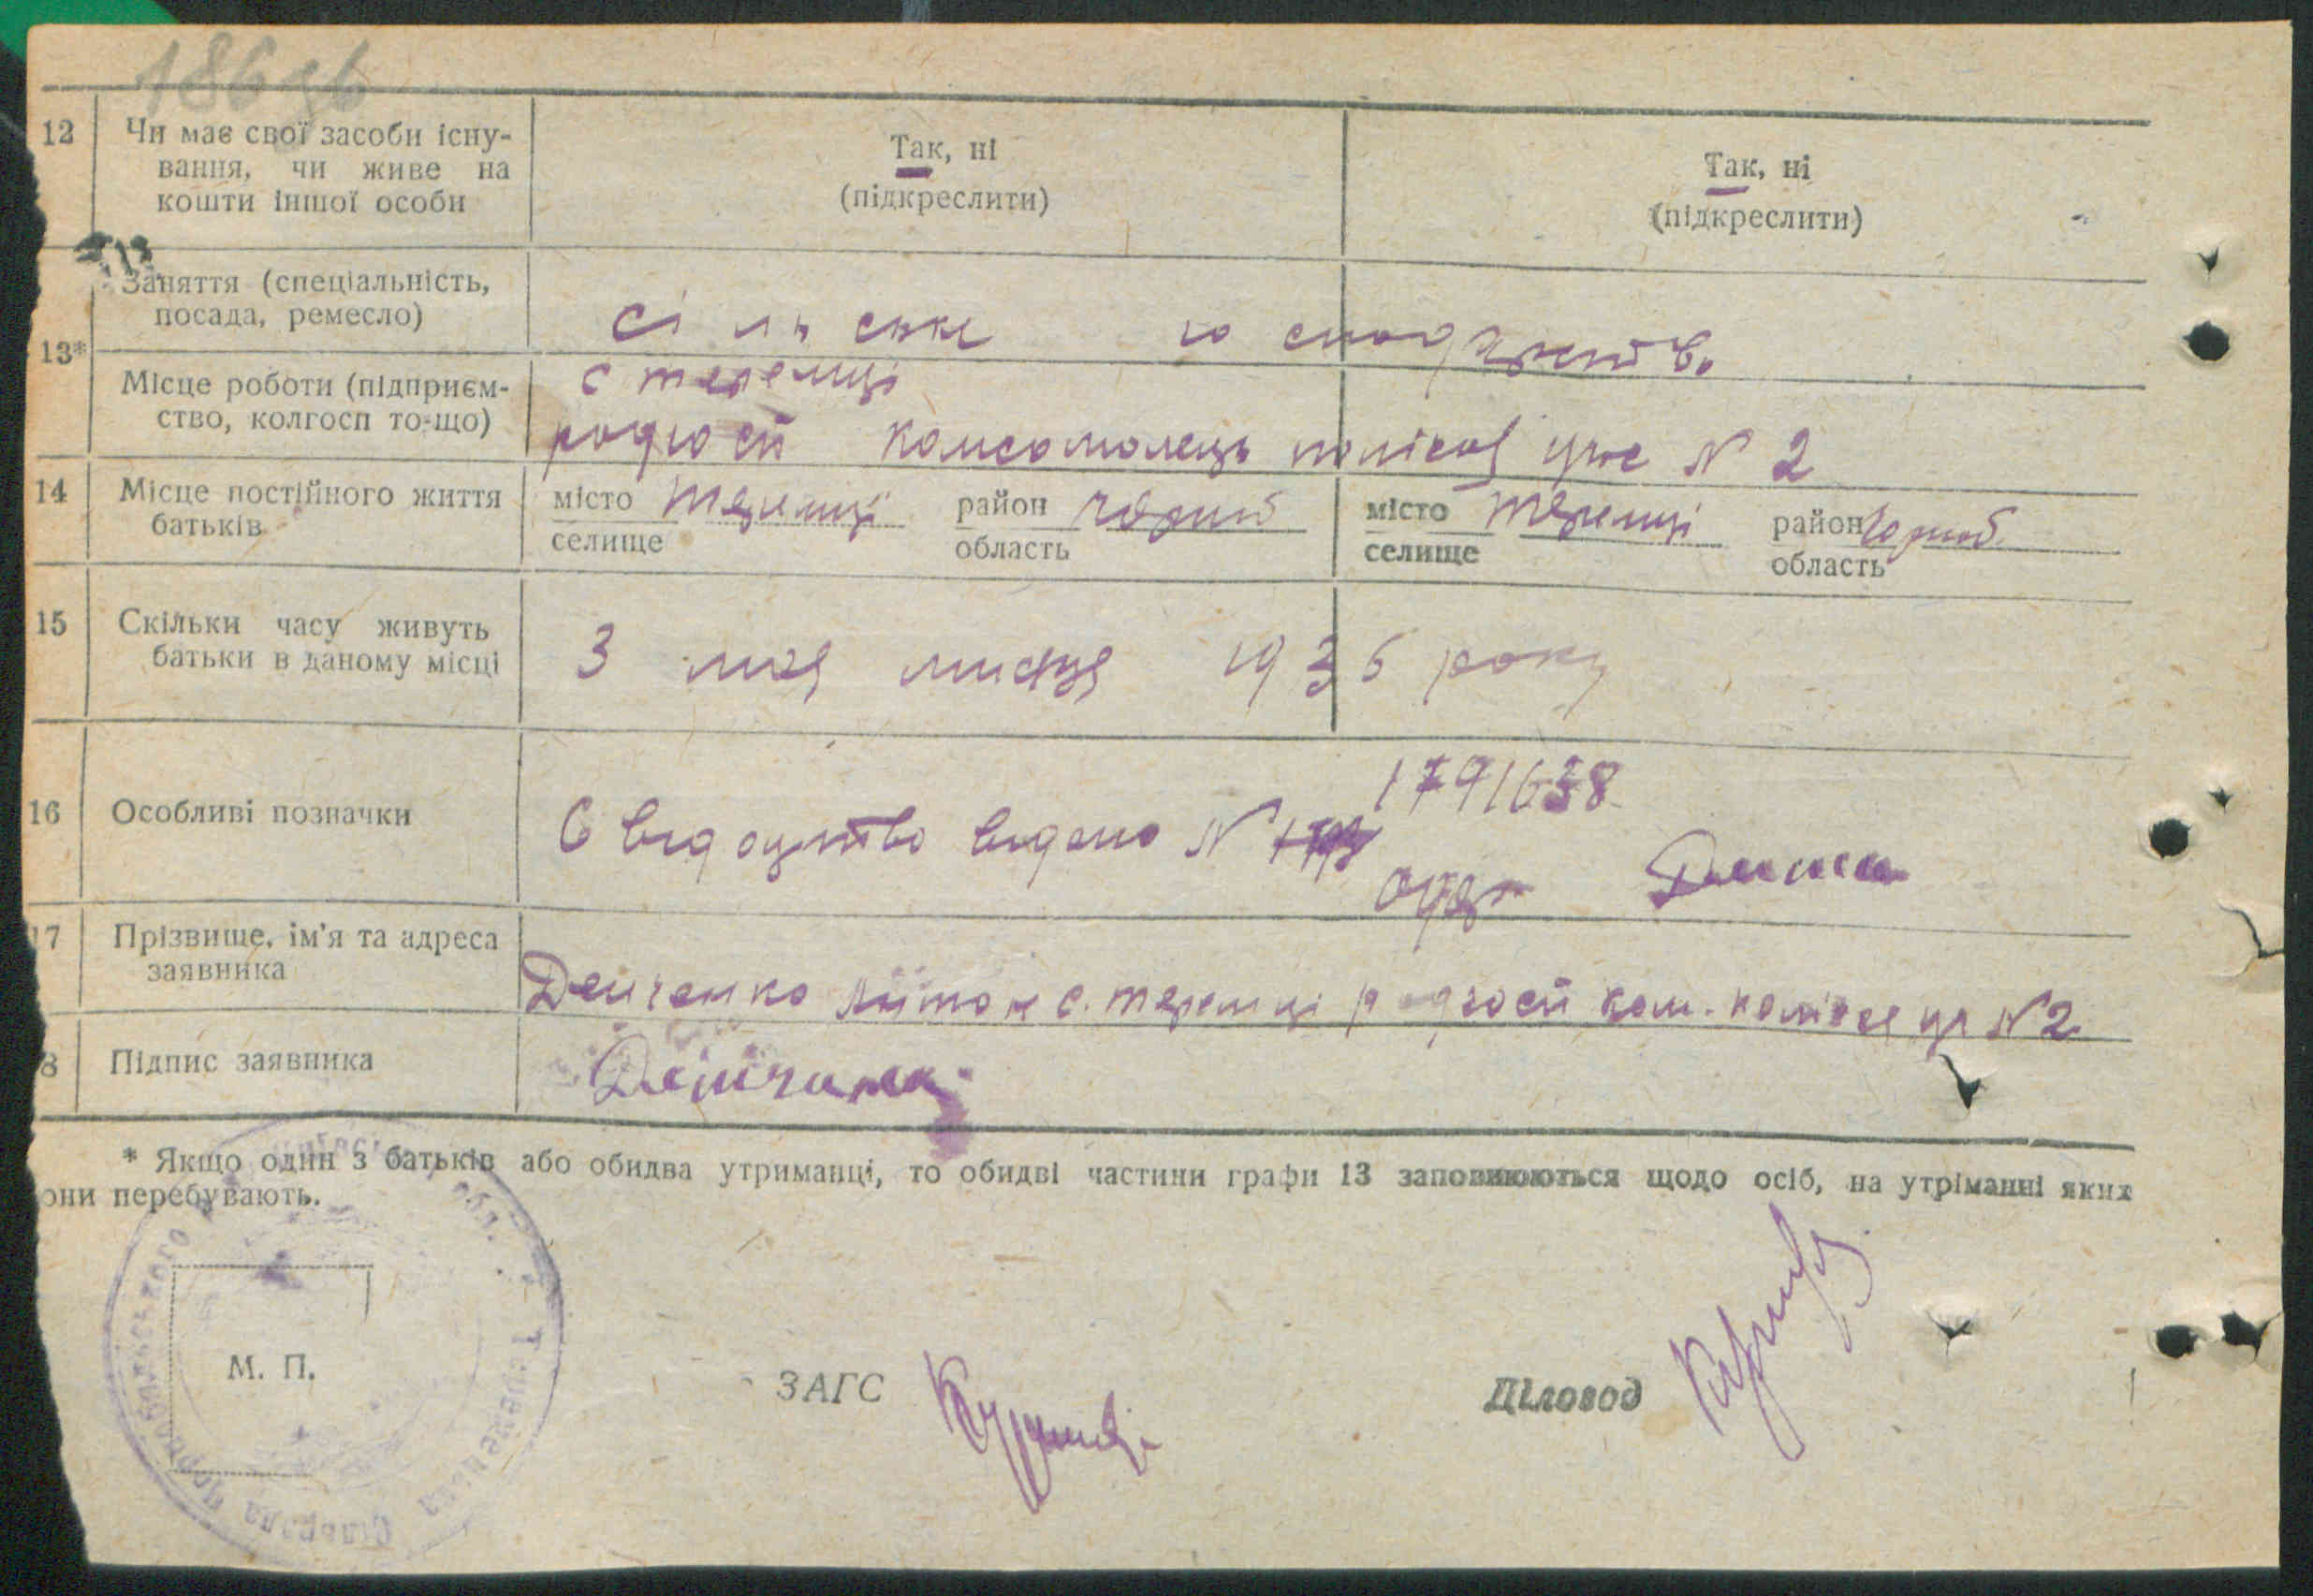 186зв
12 Чи має свої засоби існу-
вання, чи живе на
кошти іншої особи
Так, ні
(підкреслити)
Так, ні
(підкреслити)
13*
Заняття (спеціальність,
посада, ремесло)
сільське господарство
Місце роботи (підприєм-
ство, колгосп то-що)
с теремці
радгосп комсомолець полісся N 2
14 Місце постійного життя
батьків
місто Теремці район чорноб
селище область
місто Теремці район чорноб.
селище область
15 Скільки часу живуть
батьки в даному місці
З мая місяця 1936 року
16 Особливі позначки
1791638
Свидоцтво видано N
17 Прізвище, ім'я та адреса
заявника
Демченко с. теремці радгосп ком. полісся N2
8 Підпис заявника
* Якщо один з батьків або обидва утриманці, то обидві частини графи 13 заповнюються щодо осіб, на утріманні яких
они перебувають.
М. П.
ЗАГС
Діловод
обл.
Теремецька сільрада чорнобильського